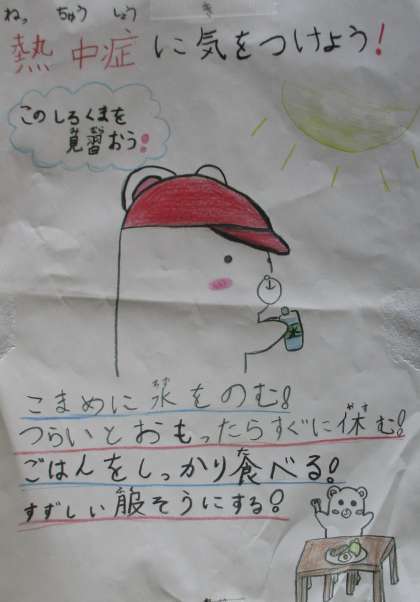 ねっ ちゅう しょう き
熱中症に気をつけよう!
このしろくまを
見習おう!
みず
こまめに水をのむ!
やす
つらいとおもったらすぐに休む!
た
ごはんをしっかり食べる!
すずしい服そうにする!
水